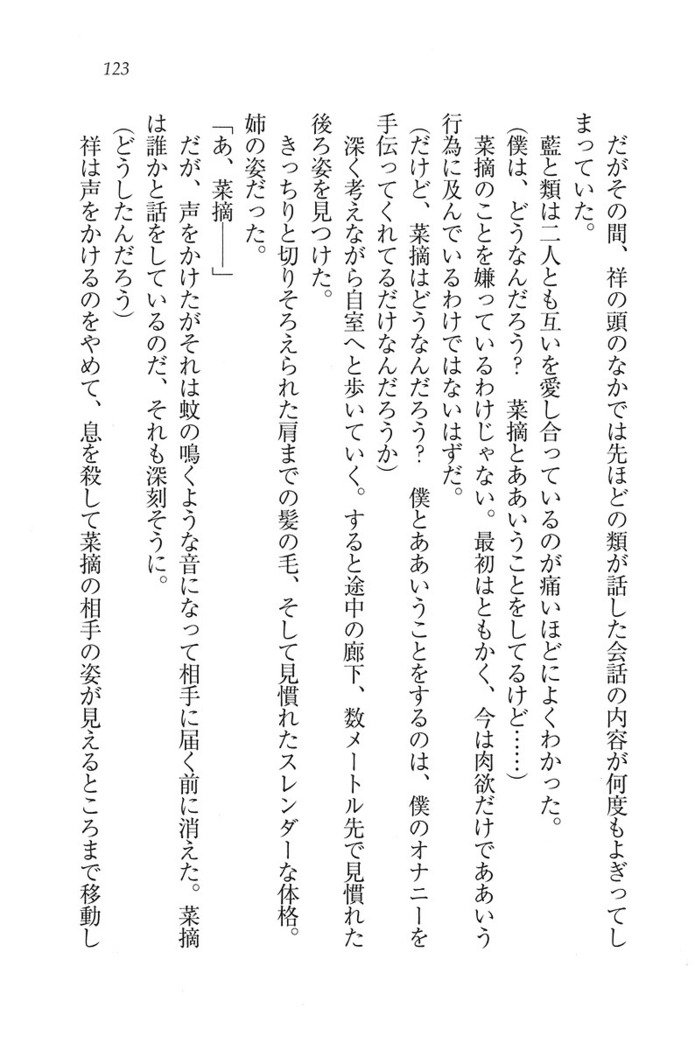 123
だがその間、祥の頭のなかでは先ほどの類が話した会話の内容が何度もよぎってし
まっていた。
藍と類は二人とも互いを愛し合っているのが痛いほどによくわかった。
(僕は、どうなんだろう？　菜摘とああいうことをしてるけど……)
菜摘のことを嫌っているわけじゃない。最初はともかく、今は肉欲だけでああいう
行為に及んでいるわけではないはずだ。
(だけど、菜摘はどうなんだろう？　僕とああいうことをするのは、僕のオナニーを
手伝ってくれてるだけなんだろうか)
深く考えながら自室へと歩いていく。すると途中の廊下、数メートル先で見慣れた
後ろ姿を見つけた。
きっちりと切りそろえられた肩までの髪の毛、そして見慣れたスレンダーな体格。
姉の姿だった。
「あ、菜摘――」
だが、声をかけたがそれは蚊の鳴くような音になって相手に届く前に消えた。菜摘
は誰かと話をしているのだ、それも深刻そうに。
(どうしたんだろう)
祥は声をかけるのをやめて、息を殺して菜摘の相手の姿が見えるところまで移動し